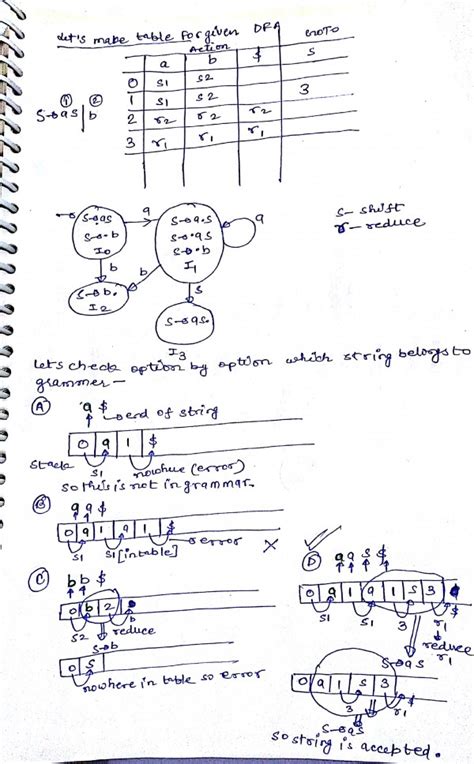 Let's make table for given DFA
Action GOTO
a b $ S
0 S1 S2
1 S1 S2 3
2 r2 r2 r2
3 r1 r1 r1
① ②
S→aS|b
S→.aS
S→.b
I0
a
S→a.S
S→.aS
S→.b
I1
a
b
b
S→b.
I2
S
S→aS.
I3
S- shift
r- reduce
Lets check option by option which string belongs to
grammer -
(A) a $
end of string
0 a 1 $
Stack
S1 nowhere (error)
so this is not in grammar.
(B) a a $
0 a 1 a 1 $
S1 S1 [in table] error ×
(C) b b $
0 b 2
S2 reduce
S→b
0 S
nowhere in table so error
(D) a a S $
0 a 1 a 1 S 3 $
S1 S1 3 r1
reduce
r1
S→aS
0 a 1 S 3 $
3 r1
S→aS
so string is accepted.